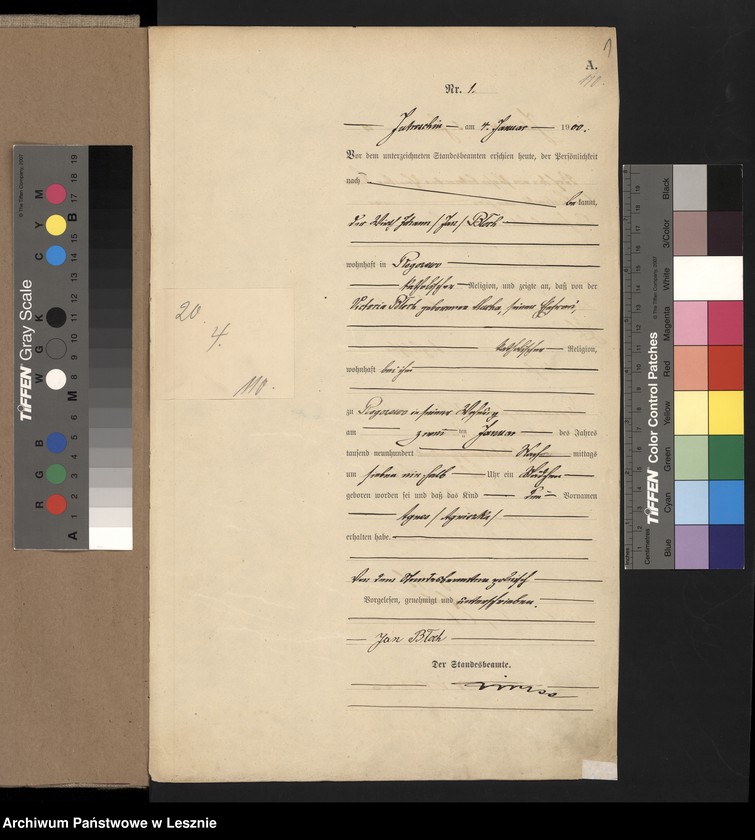 A.
110.
Nr. 1.
Jutroschin am 4. Januar 1900.
Vor dem unterzeichneten Standesbeamten erschien heute, der Persönlichkeit
nach
be kannt,
der Wirth Johann / Jan / Bloch
wohnhaft in Rogozewo
katholischer Religion, und zeigte an, daß von der
Victoria Bloch geborenen seiner Ehefrau,
katholischer Religion,
wohnhaft bei ihm
zu Rogozewo in seiner Wohnung
am zweiten Januar des Jahres
tausend neunhundert Nach mittags
um sieben ein halb Uhr ein Mädchen
geboren worden sei und daß das Kind den Vornamen
Agnes / Agnieszka /
erhalten habe.
Von dem Standesbeamten polnisch
Vorgelesen, genehmigt und unterschrieben.
Jan Bloch
Der Standesbeamte.
20
4.
110.
TIFFEN Gray Scale
© The Tiffen Company, 2007
R G B W G K C Y M
A 1 2 3 4 5 6 M 8 9 10 11 12 13 14 15 B 17 18 19
TIFFEN Color Control Patches
© The Tiffen Company, 2007
Centimetres
Blue Cyan Green Yellow Red Magenta White 3/Color Black
Archiwum Państwowe w Lesznie